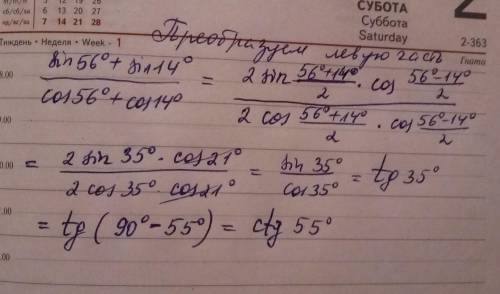 6 13 20 27
7 14 21 28
СУБОТА
Суббота
Saturday
2
Тиждень • Неделя • Week - 1
2-363
Преобразуем левую часть
(sin56° + sin14°)/(cos56° + cos14°) = (2 sin (56°+14°)/2 · cos (56°-14°)/2)/(2 cos (56°+14°)/2 · cos (56°-14°)/2)
= (2 sin 35° · cos21°)/(2 cos 35° · cos21°) = sin 35°/cos35° = tg 35°
= tg (90° - 55°) = ctg 55°